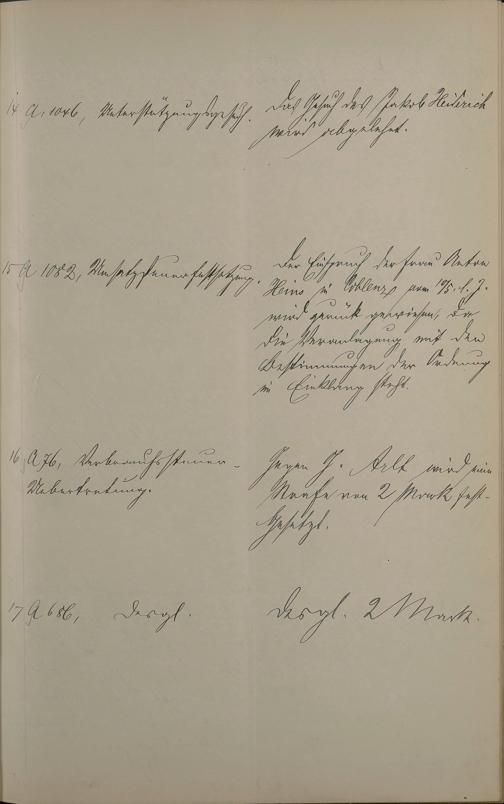 14 A. 1046, Unterstützungsgesuch.
Das Gesuch des Jakob Heiderich
wird abgelehnt.
15 A 1082, Umsatzsteuerfestsetzung.
Der Einspruch der Frau Anton
Heins in Coblenz vom 10/5. l. J.
wird zurück gewiesen, da
die Veranlagung mit den
Bestimmungen der Ordnung
in Einklang steht.
16 A 76, Verbrauchssteuer-
Uebertretung.
Gegen J. Arlt wird eine
Strafe von 2 Mark fest-
gesetzt.
17 A 686, Desgl.
Desgl. 2 Mark.